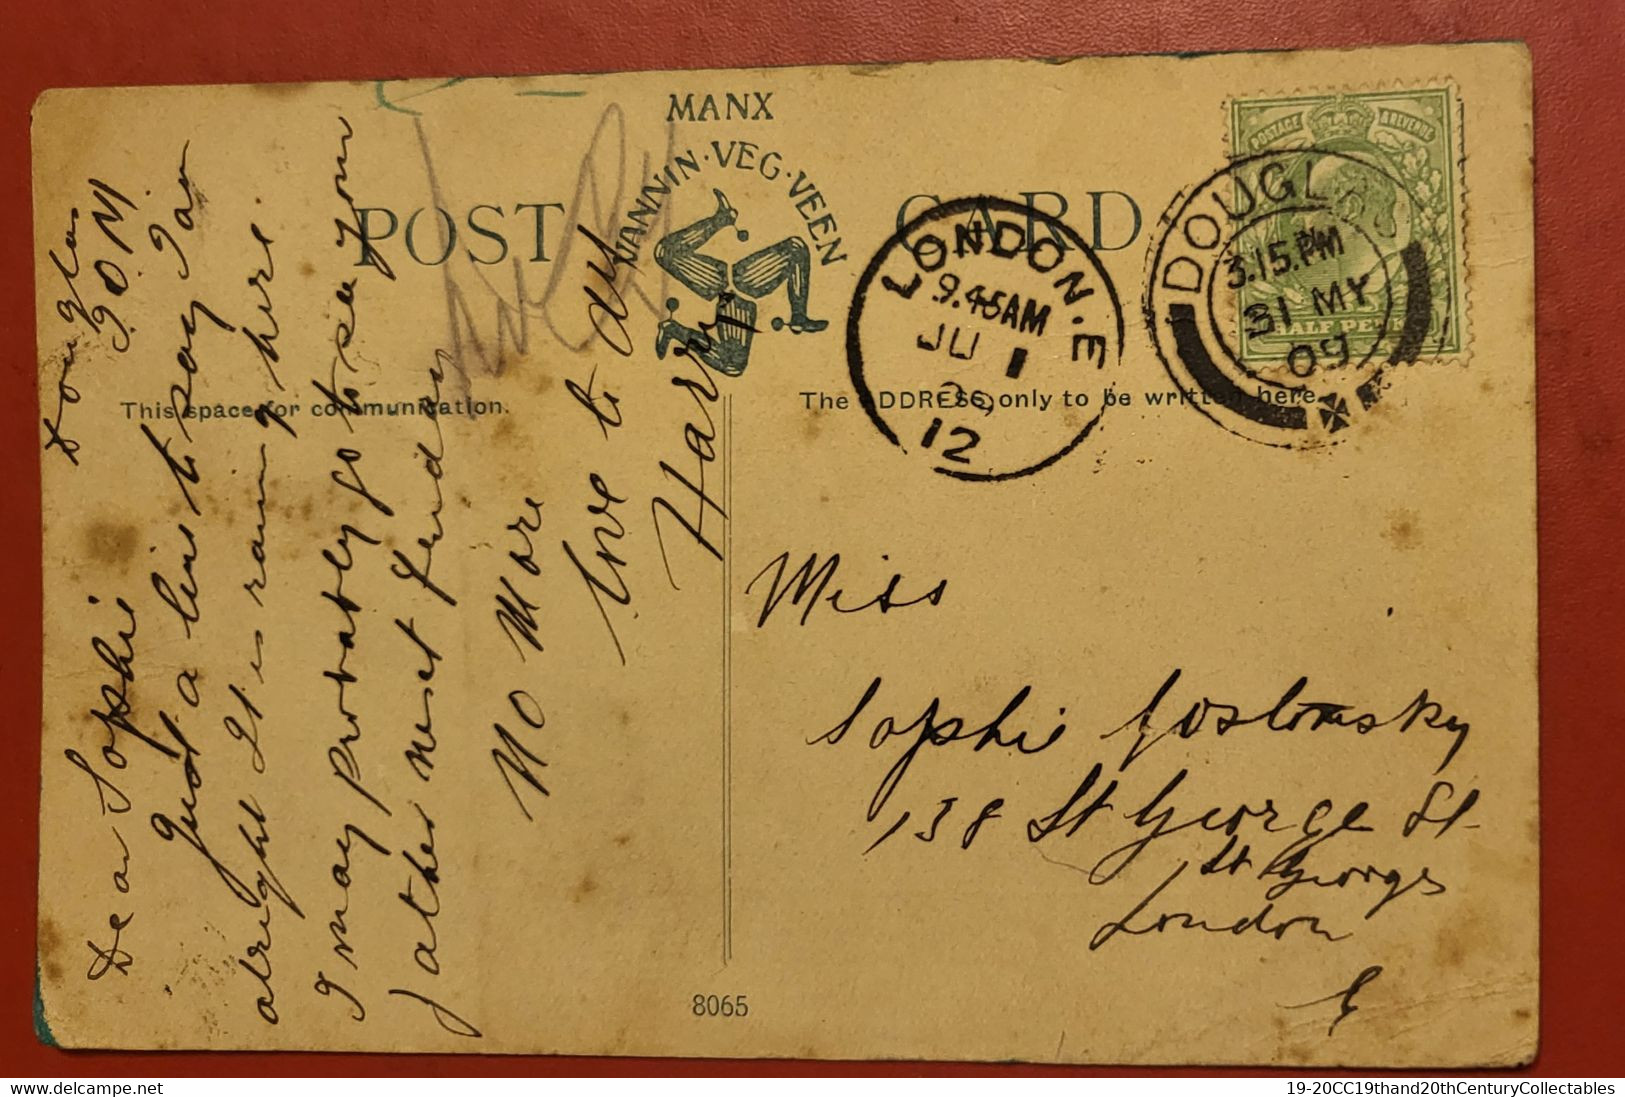 MANX
VANNIN·VEG·VEEN
POST CARD
This space for communication.
The ADDRESS only to be written here.
POSTAGE & REVENUE
HALF PENNY
LONDON.E
9.45AM
JU 1
12
DOUGLAS
3.15.PM
31 MY
09
Douglas
I O M
Dear Sophie
Just a line to say I am
alright It is raining here.
I may probably go to see your
father next funday
No More
love to all
Harry
Miss
Sophie
138 St George St
St Georges
London
E
8065
19-20CC19thand20thCenturyCollectables